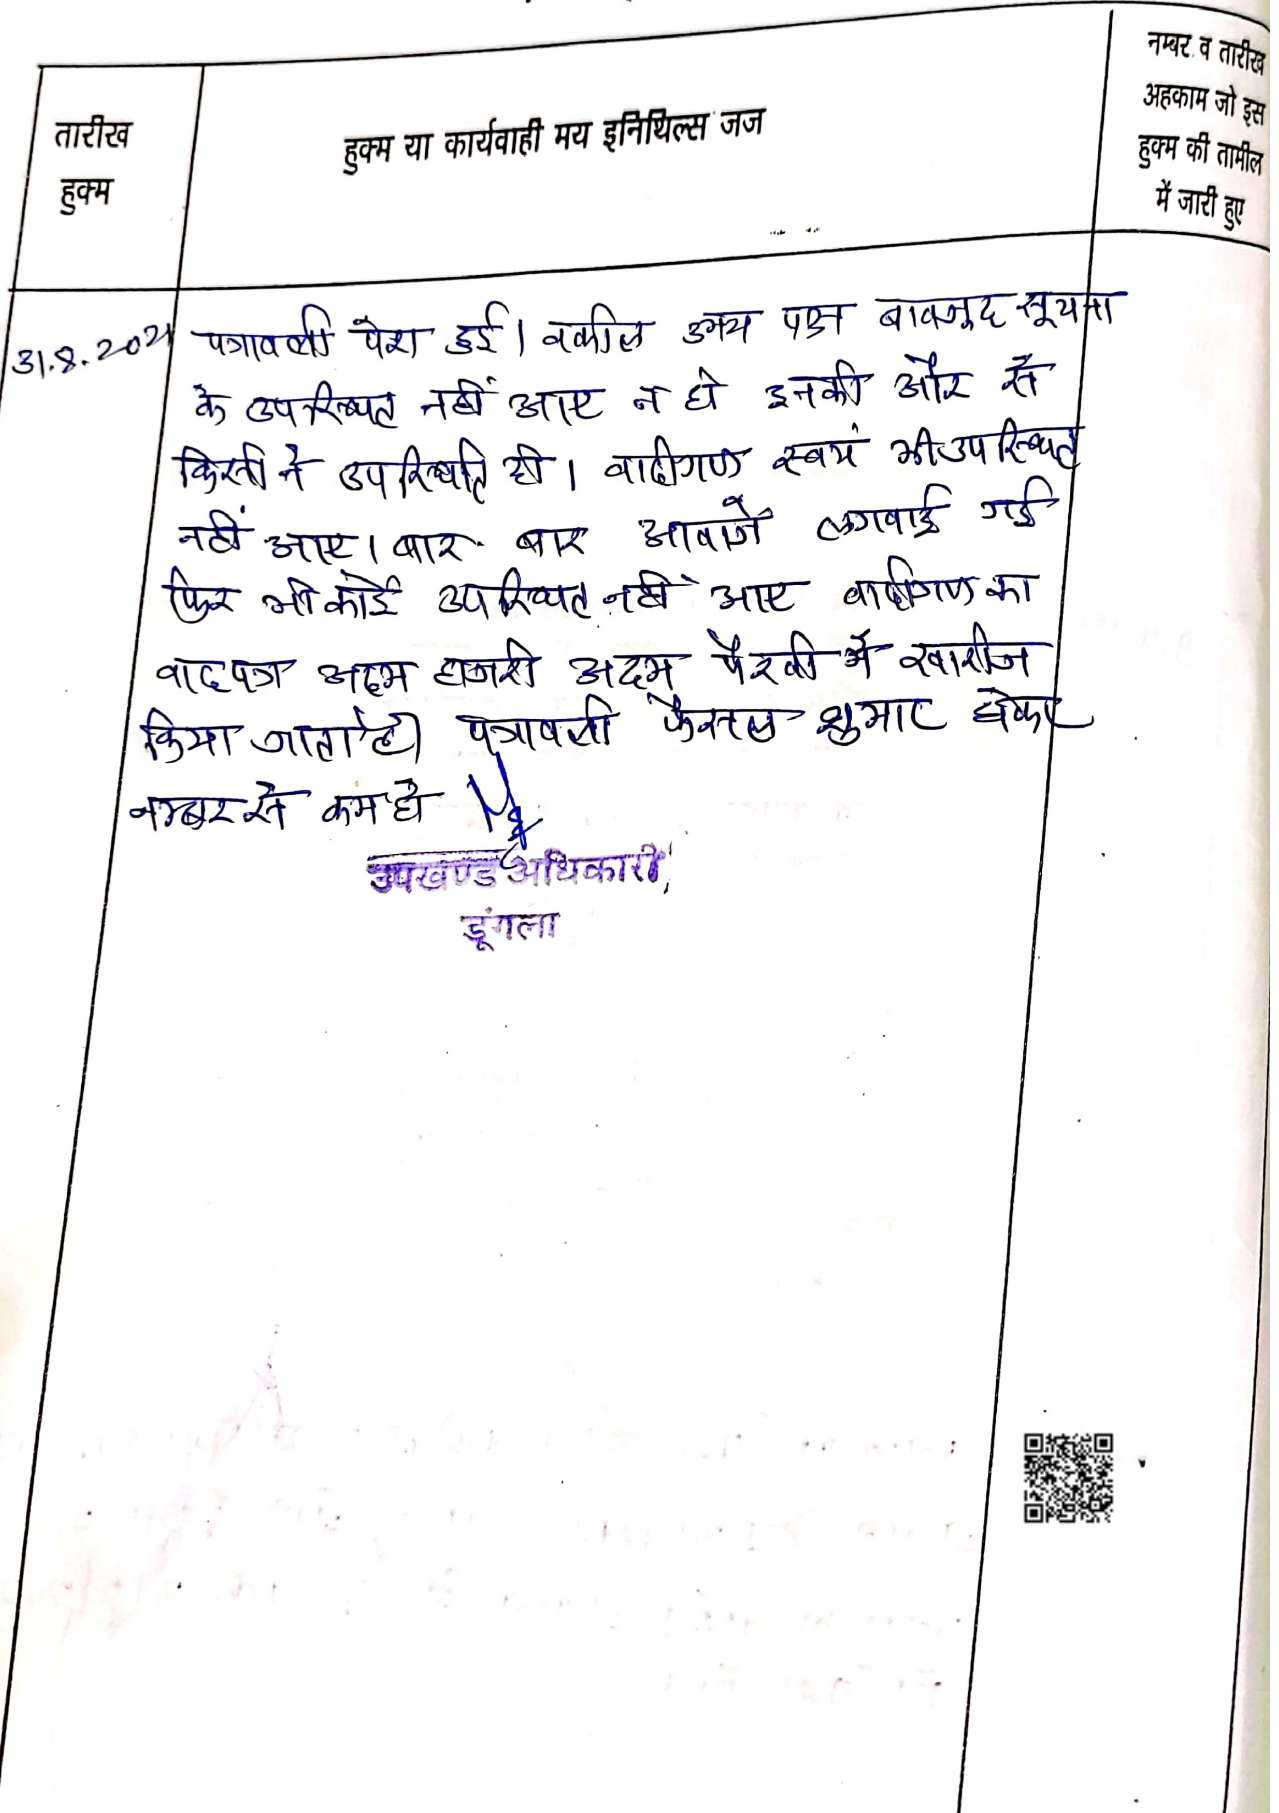 तारीख
हुक्म
हुक्म या कार्यवाही मय इनिथिल्स जज
नम्बर व तारीख
अहकाम जो इस
हुक्म की तामील
में जारी हुए
31.8.2021
पत्रावली पेश हुई। वकील उभय पक्ष बावजूद सूचना
के उपस्थित नहीं आए न ही इनकी और से
किसी ने उपस्थिति दी। वादीगण स्वयं भी उपस्थित
नहीं आए। बार बार आवाजें लगवाई गई
फिर भी कोई उपस्थित नहीं आए वादीगण का
वादपत्र अदम हाजरी अदम पैरवी में खारीज
किया जाता है। पत्रावली फैसल शुमार होकर
नम्बर से कम हो
उपखण्ड अधिकारी,
डूंगला